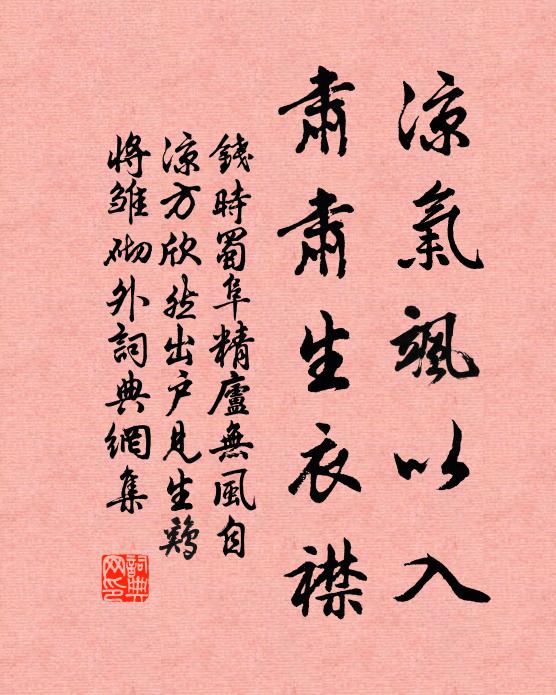 涼氣颯以入
肅肅生衣襟
錢時蜀阜精廬無風自
涼方欣然出户見生鷄
將雏砌外詞典網集
詞典网印